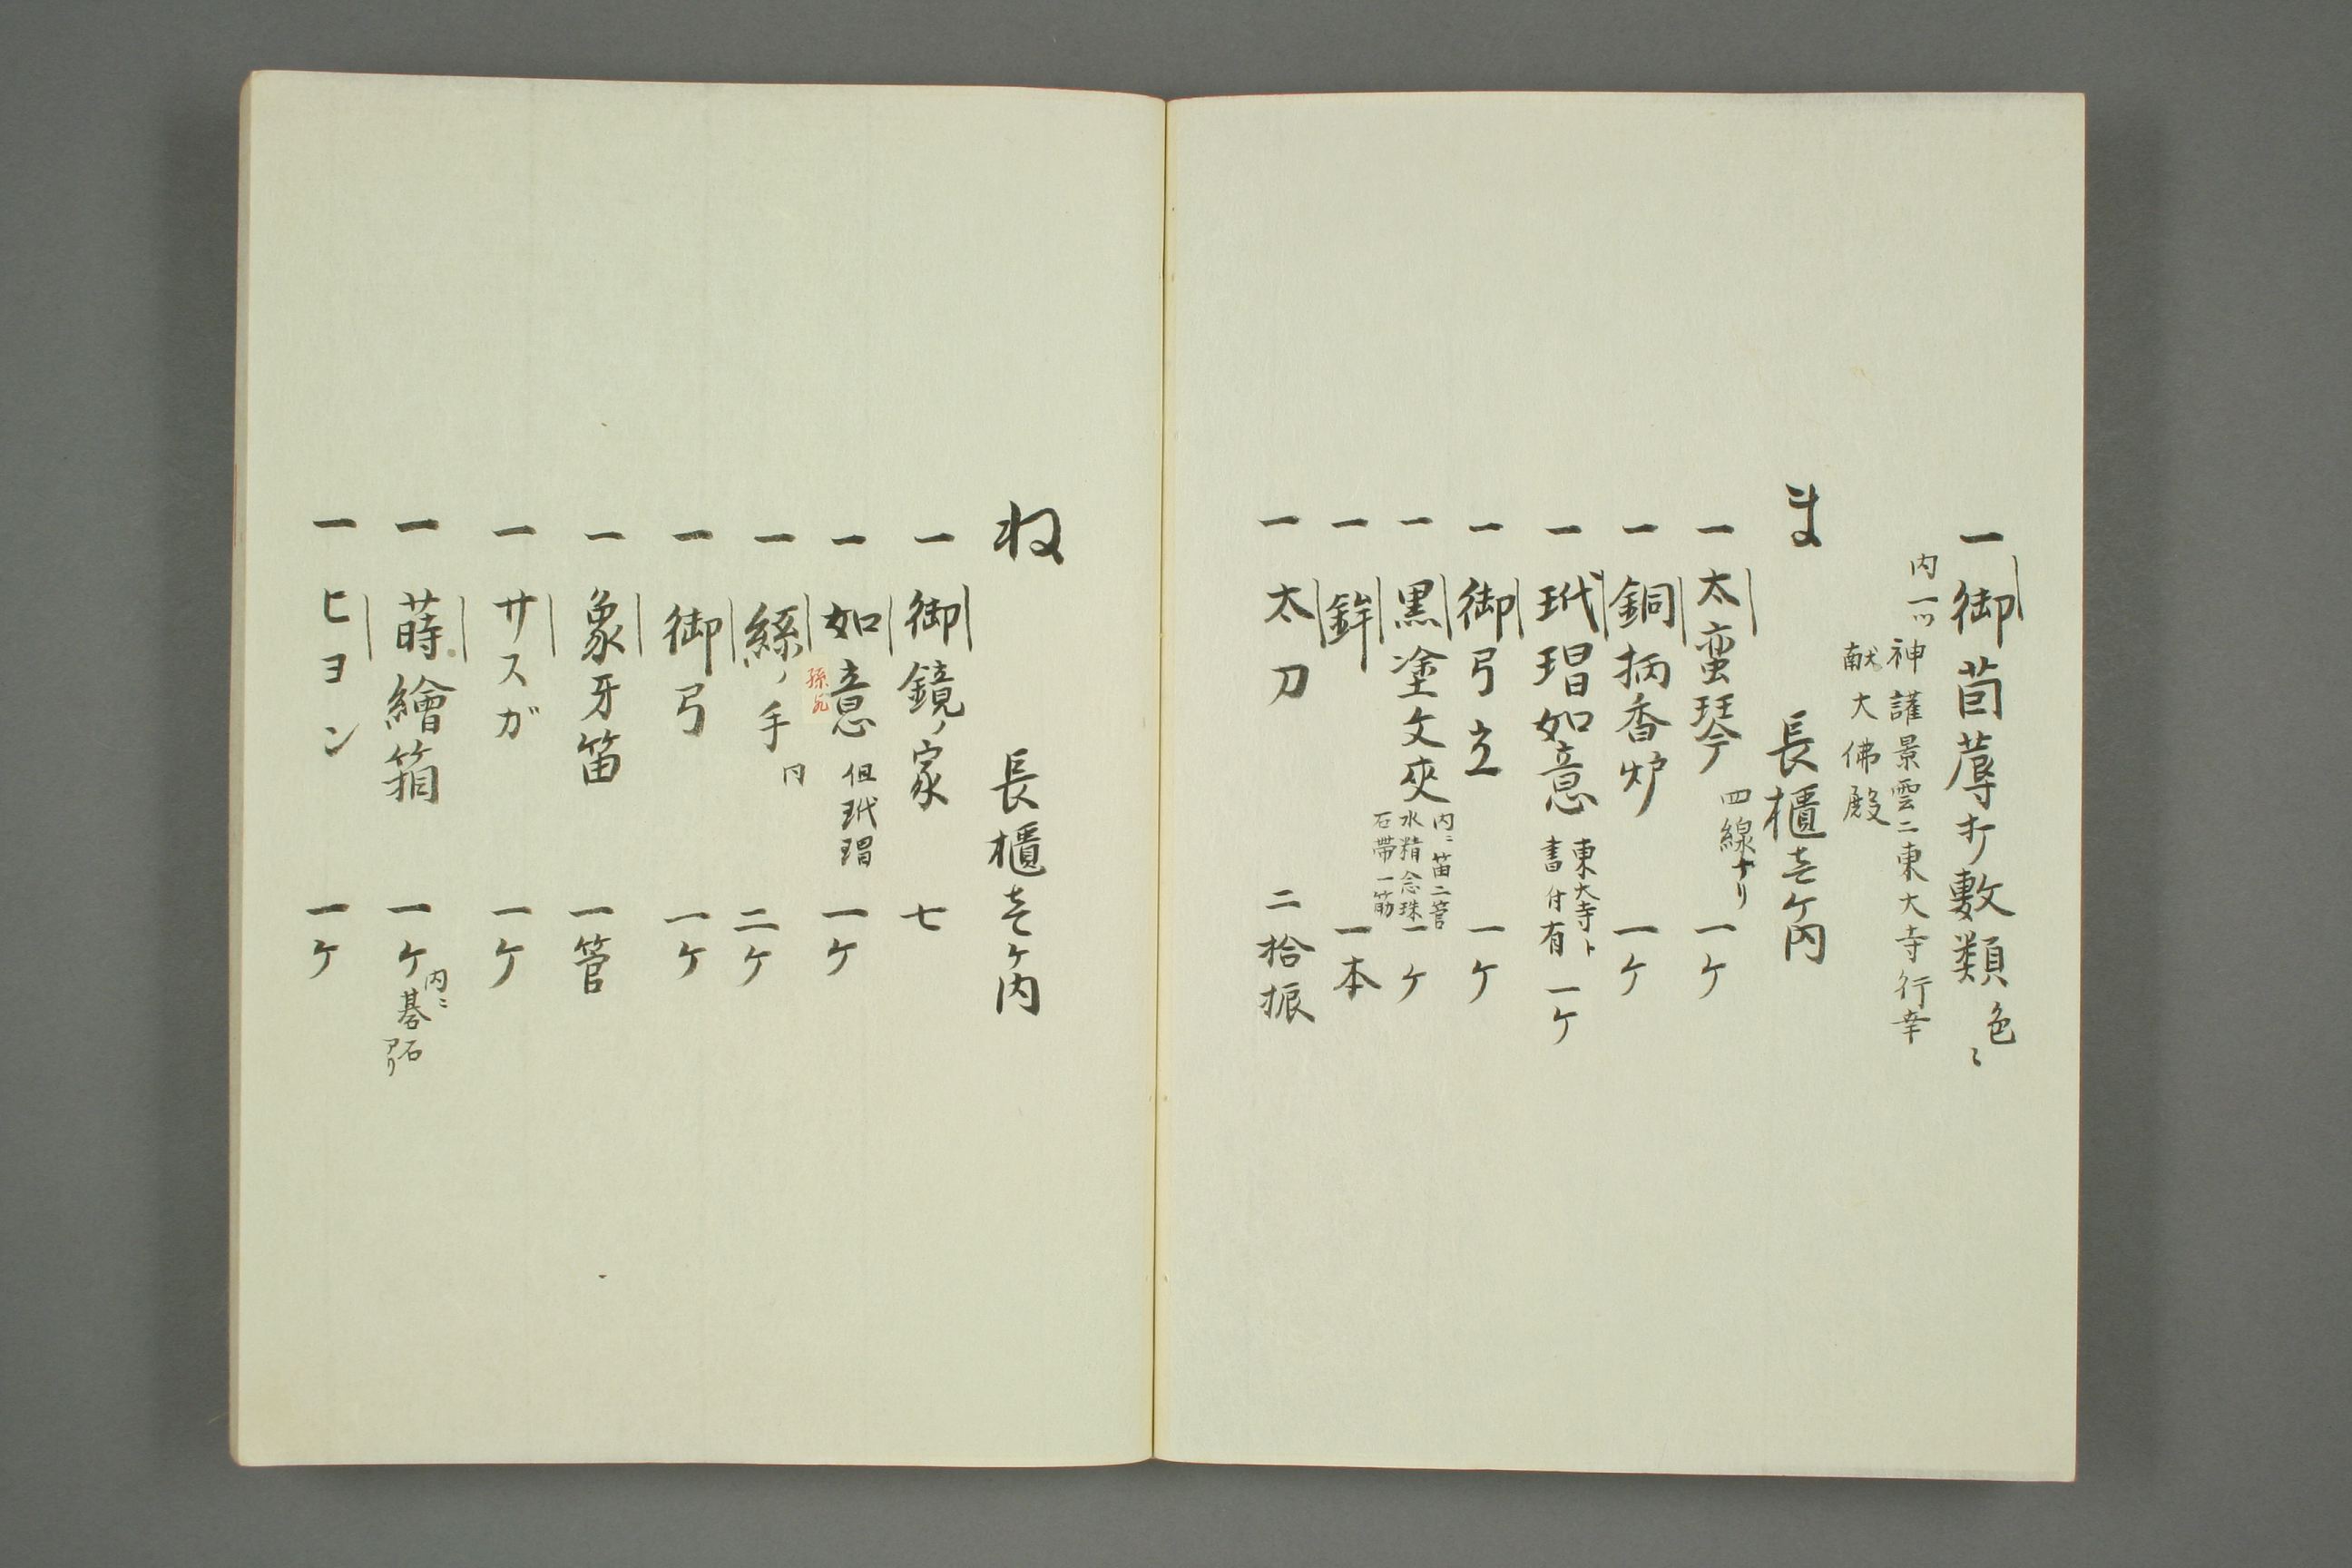 一 御茵蓐才敷類 色〻
内一ツ神護景雲二東大寺行幸
献大佛殿
ま 長櫃壱ケ内
一 太蛮琴 四線ナリ 一ケ
一 銅柄香炉 一ケ
一 玳瑁如意 東大寺ト書付有 一ケ
一 御弓立 一ケ
一 黒塗文夾 内ニ笛二管 水精念珠一 石帯一筋 一ケ
一 鉾 一本
一 太刀 二拾振
ね 長櫃壱ケ内
一 御鏡ノ家 七
一 如意 但玳瑁 一ケ
一 絲ノ手 二ケ
一 御弓 一ケ
一 象牙笛 一管
一 サスガ 一ケ
一 蒔繪箱 一ケ 内ニ碁石アリ
一 ヒヨン 一ケ